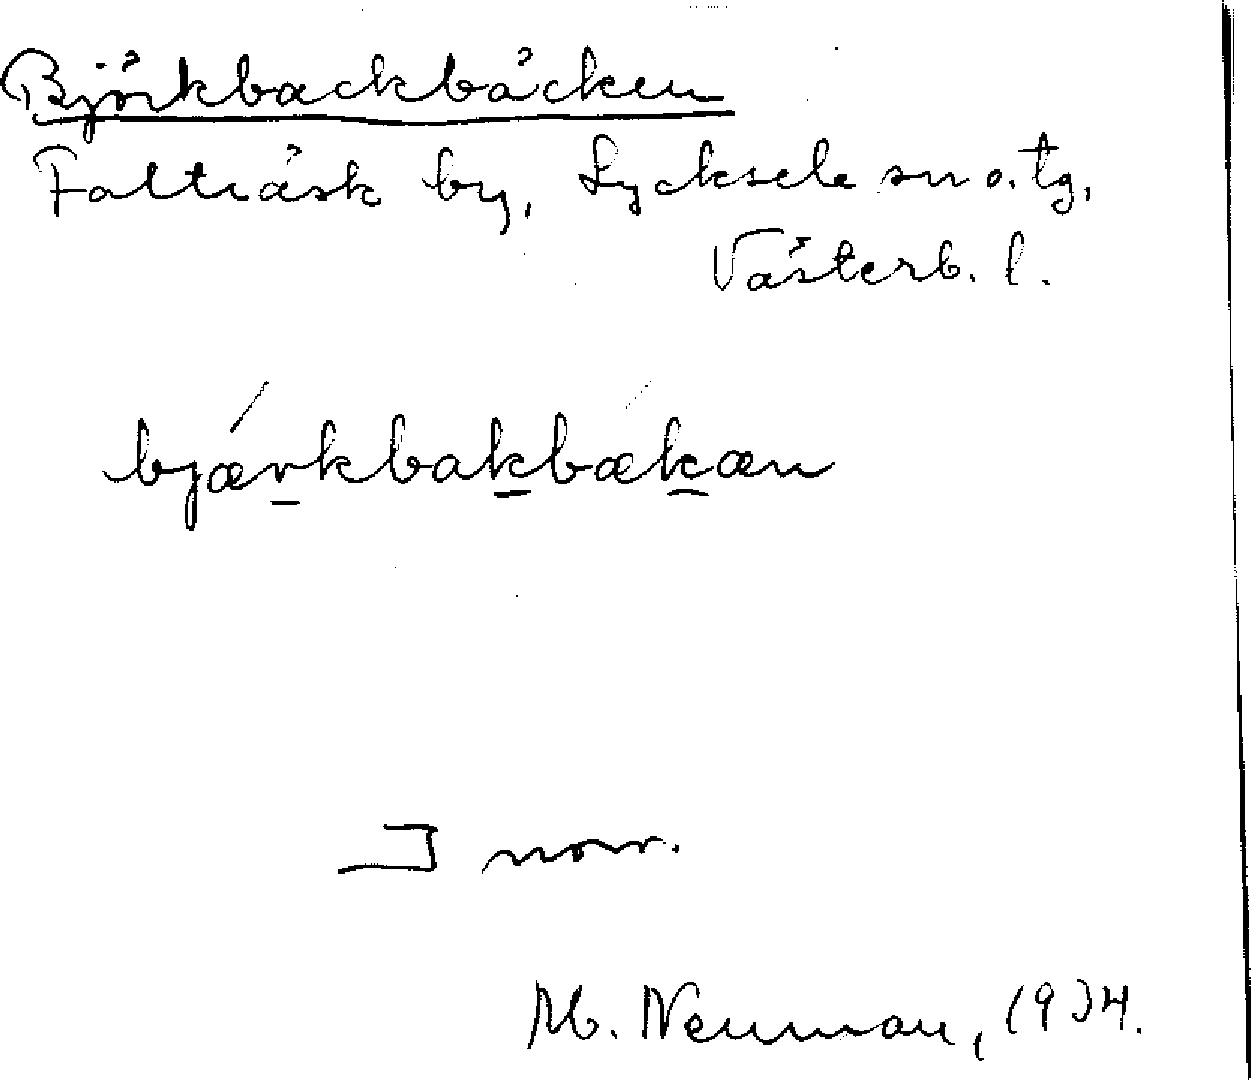 Björkbackbäcken
Falträsk by, Lycksele sn o. tg,
Västerb. l.
bjærkbakbækæn
I norr.
M. Neuman, 1934.